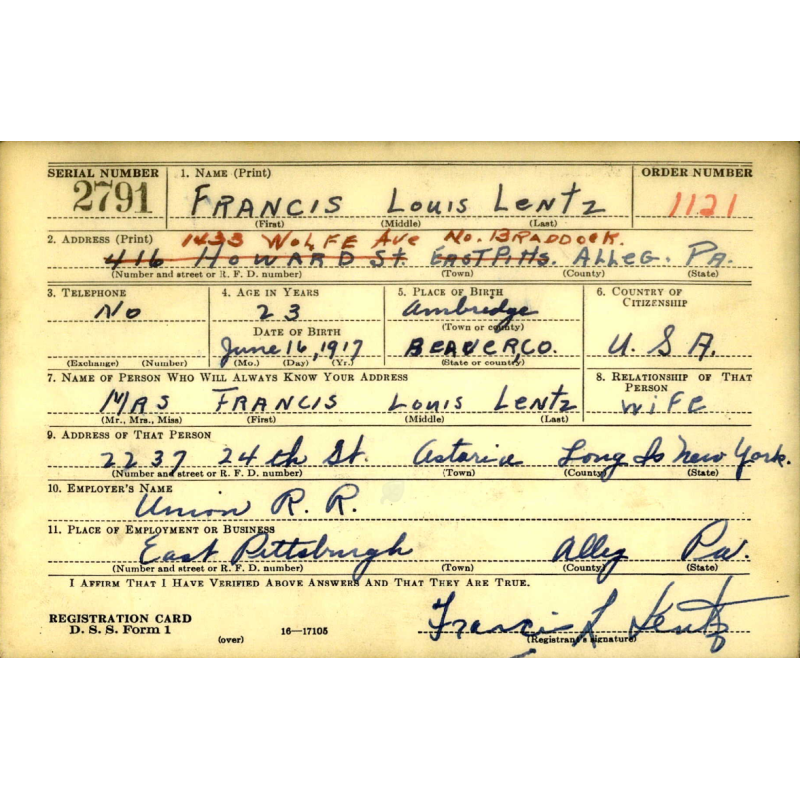 SERIAL NUMBER 1. NAME (Print) ORDER NUMBER
2791 FRANCIS LOUIS LENTZ 1121
(First) (Middle) (Last)
2. ADDRESS (Print) 1433 WOLFE AVE NO. BRADDOCK.
416 HOWARD St. EAST PITTS. ALLEG. PA.
(Number and street or R. F. D. number) (Town) (County) (State)
3. TELEPHONE 4. AGE IN YEARS 5. PLACE OF BIRTH 6. COUNTRY OF CITIZENSHIP
No 23 Ambridge
DATE OF BIRTH (Town or county)
June 16, 1917 BEAVER, CO. U. S. A.
(Exchange) (Number) (Mo.) (Day) (Yr.) (State or country)
7. NAME OF PERSON WHO WILL ALWAYS KNOW YOUR ADDRESS 8. RELATIONSHIP OF THAT PERSON
MRS FRANCIS LOUIS LENTZ WIFE
(Mr., Mrs., Miss) (First) (Middle) (Last)
9. ADDRESS OF THAT PERSON
2237 24th St. Astoria Long Is New York.
(Number and street or R. F. D. number) (Town) (County) (State)
10. EMPLOYER'S NAME
Union R. R.
11. PLACE OF EMPLOYMENT OR BUSINESS
East Pittsburgh Alleg Pa.
(Number and street or R. F. D. number) (Town) (County) (State)
I AFFIRM THAT I HAVE VERIFIED ABOVE ANSWERS AND THAT THEY ARE TRUE.
REGISTRATION CARD
D. S. S. Form 1 (over) 16—17105 Francis L Lentz
(Registrant's signature)